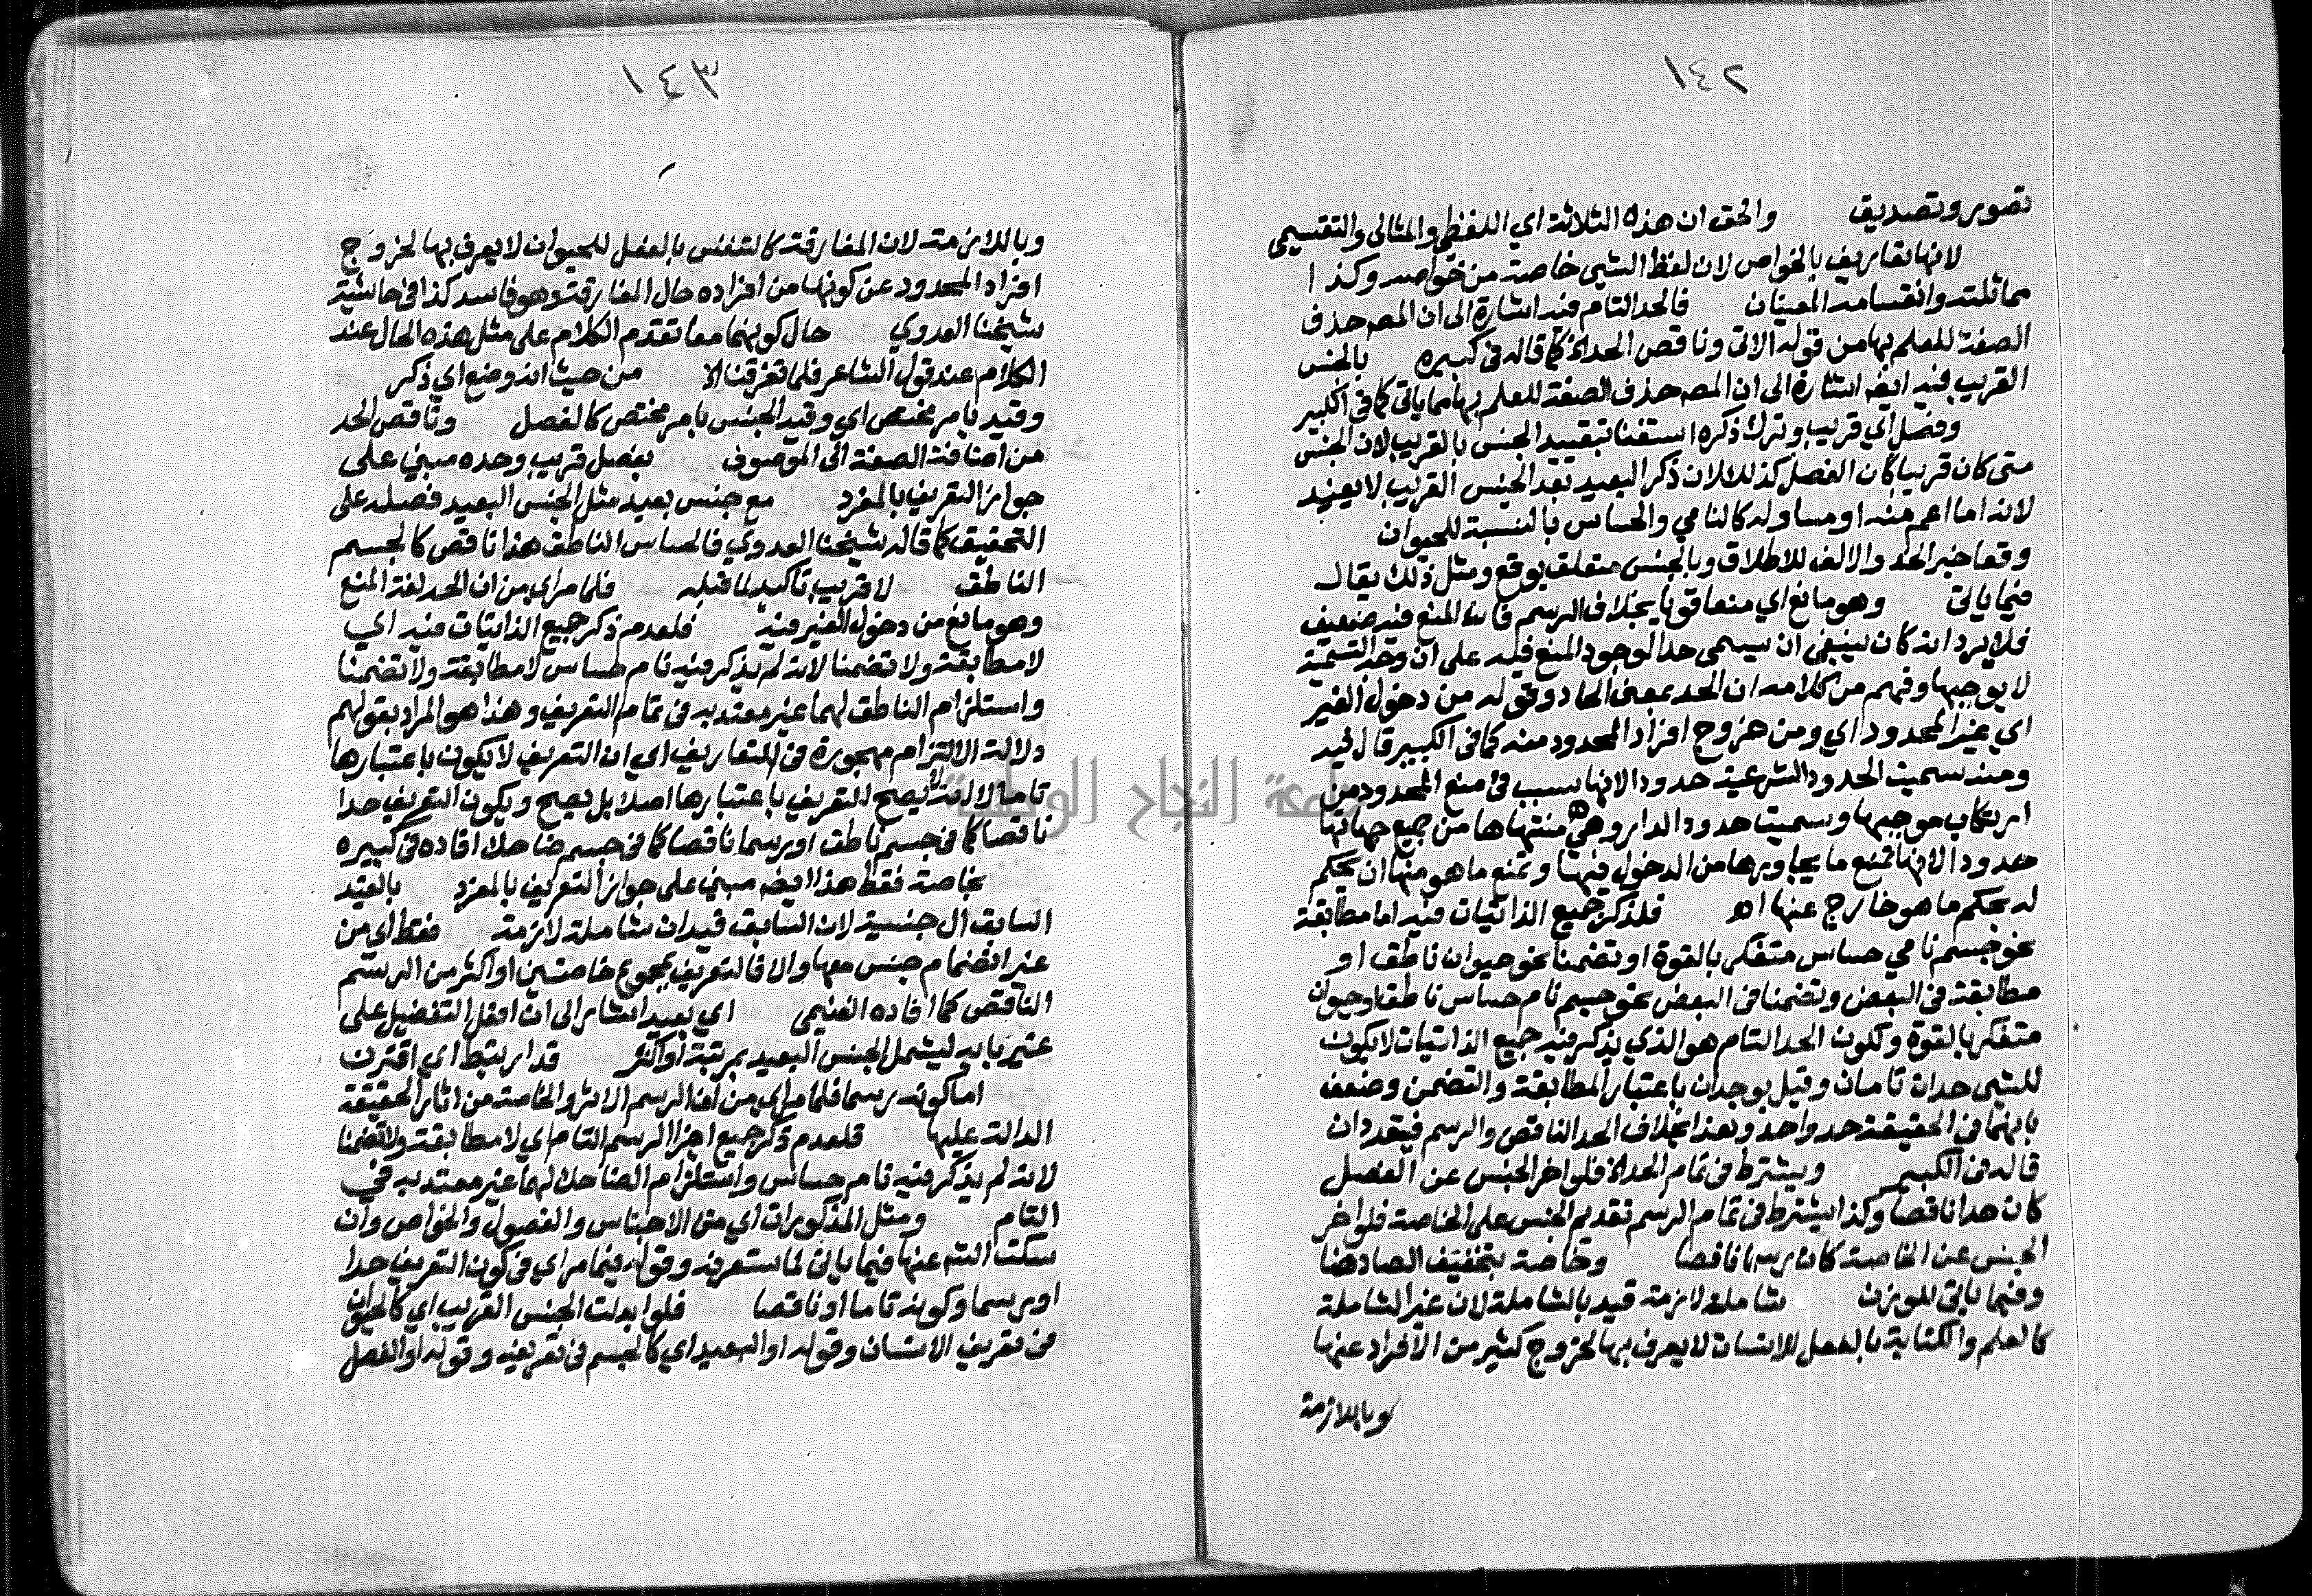 ١٤٢
تصور وتصديق والحق ان هذه الثلاثة اي اللفظي والمثالى والتقسيمى
لانها تعاريف بالخواص لان لفظ الشي خاصة من خواصه وكذا
مماثلته وانقسامه المعينان فالحد التام فيه اشارة الى ان المصـ حذف
الصفة للعلم بها من قوله الاتى وناقص الحد الخ كما قاله فى كبيره بالجنس
القريب فيه ايضـ اشارة الى ان المصـ حذف الصفة للعلم بها مما ياتى كما فى الكبير
وفصل اي قريب وترك ذكره استغنا بتقييد الجنس بالقريب لان الجنس
متى كان قريبا كان الفصل كذلك لان ذكر البعيد بعد الجنس القريب لا يفيد
لانه اما اعم منه او مساو له كالنامي والحساس بالنسبة للحيوان
وقعا خبر الحد والالف للاطلاق وبالجنس متعلق بوقع ومثل ذلك يقال
فيما ياتى وهو مانع اي منعا قويا بخلاف الرسم فان المنع فيه ضعيف
فلا يرد انه كان ينبغى ان يسمى حدا لوجود المنع فيه على ان وجه التسمية
لا يوجبها وفهم من كلامه ان الحد بمعنى الحاد وقوله من دخول الغير
اي غير المحدود اي ومن خروج افراد المحدود منه كما فى الكبير قال فيه
ومنه سميت الحدود الشرعية حدودا لانها سبب فى منع المحدود من
ارتكاب موجبها وسميت حدود الدار وهى منتهاها من جميع جهاتها
حدودا لانها تمنع ما يجاورها من الدخول فيها وتمنع ما هو منها ان يحكم
له بحكم ما هو خارج عنها اهـ فلذكر جميع الذاتيات فيه اما مطابقة
نحو جسم نامي حساس متفكر بالقوة او تضمنا نحو حيوان ناطق او
مطابقة فى البعض وتضمنا فى البعض نحو جسم نام حساس ناطق او حيوان
متفكر بالقوة ولكون الحد التام هو الذي يذكر فيه جميع الذاتيات لا يكون
للشي حدان تامان وقيل يوجدان باعتبار المطابقة والتضمن وضعف
بانهما فى الحقيقة حد واحد وهذا بخلاف الحد الناقص والرسم فيتعددان
قاله فى الكبير ويشترط فى تمام الحد الخ فلو اخر الجنس عن الفصل
كان حدا ناقصا وكذا يشترط فى تمام الرسم تقديم الجنس على الخاصة فلو اخر
الجنس عن الخاصة كان رسما ناقصا وخاصة بتخفيف الصاد هنا
وفيما ياتى للوزن شاملة لازمة قيد بالشاملة لان غير الشاملة
كالعلم والكتابة بالفعل للانسان لا يعرف بها لخروج كثير من الافراد عنها
وباللازمة
١٤٣
وباللازمة لان المفارقة كالتنفس بالفعل للحيوان لا يعرف بها لخروج
افراد المحدود عن كونها من افراده حال المفارقة وهو فاسد كذا فى حاشية
شيخنا العدوي حال كونهما معا تقدم الكلام على مثل هذه الحال عند
الكلام عند قول الشاعر فلما تفرقنا الخ من حيث انه وضع اي ذكر
وقيد بامر مختص اي وقيد الجنس بامر مختص كالفصل وناقص الحد
من اضافة الصفة الى الموصوف بفصل قريب وحده مبني على
جواز التعريف بالمفرد مع جنس بعيد مثل الجنس البعيد فصله على
التحقيق كما قاله شيخنا العدوي فالحساس الناطق هذا ناقص كالجسم
الناطق لا قريب تاكيد لما قبله فلما مر اي من ان الحد لغة المنع
وهو مانع من دخول الغير فيه فلعدم ذكر جميع الذاتيات فيه اي
لا مطابقة ولا تضمنا لانه لم يذكر فيه نام حساس لا مطابقة ولا تضمنا
واستلزام الناطق لهما غير معتد به فى تمام التعريف وهذا هو المراد بقولهم
دلالة الالتزام مهجورة فى التعاريف اي ان التعريف لا يكون باعتبارها
تاما لا انه لا يصح التعريف باعتبارها اصلا بل يصح ويكون التعريف حدا
ناقصا كما فى جسم ناطق او رسما ناقصا كما فى جسم ضاحك افاده فى كبيره
بخاصة فقط هذا ايضـ مبني على جواز التعريف بالمفرد بالقيد
السابق ال جنسية لان السابق قيدان شاملة لازمة فقط اي من
غير انضمام جنس معها والا فالتعريف بمجموع خاصتين او اكثر من الرسم
الناقص كما افاده الغنيمى اي بعيد اشار الى ان افعل التفضيل على
غير بابه ليشمل الجنس البعيد بمرتبة او اكثر قد ارتبط اي اقترن
اما كونه رسما فلما مر اي من ان الرسم الاثر والخاصة من اثار الحقيقة
الدالة عليها فلعدم ذكر جميع اجزا الرسم التام اي لا مطابقة ولا تضمنا
لانه لم يذكر فيه نام حساس واستلزام الضاحك لهما غير معتد به في
التام ومثل المذكورات اي من الاجناس والفصول والخواص وان
سكت الشـ عنها فيما ياتى لما ستعرفه وقوله فيما مر اي فى كون التعريف حدا
او رسما وكونه تاما او ناقصا فلو ابدلت الجنس القريب اي كالحيوان
فى تعريف الانسان وقوله او البعيد اي كالجسم فى تعريفه وقوله او الفصل
جامعة النجاح الوطنية